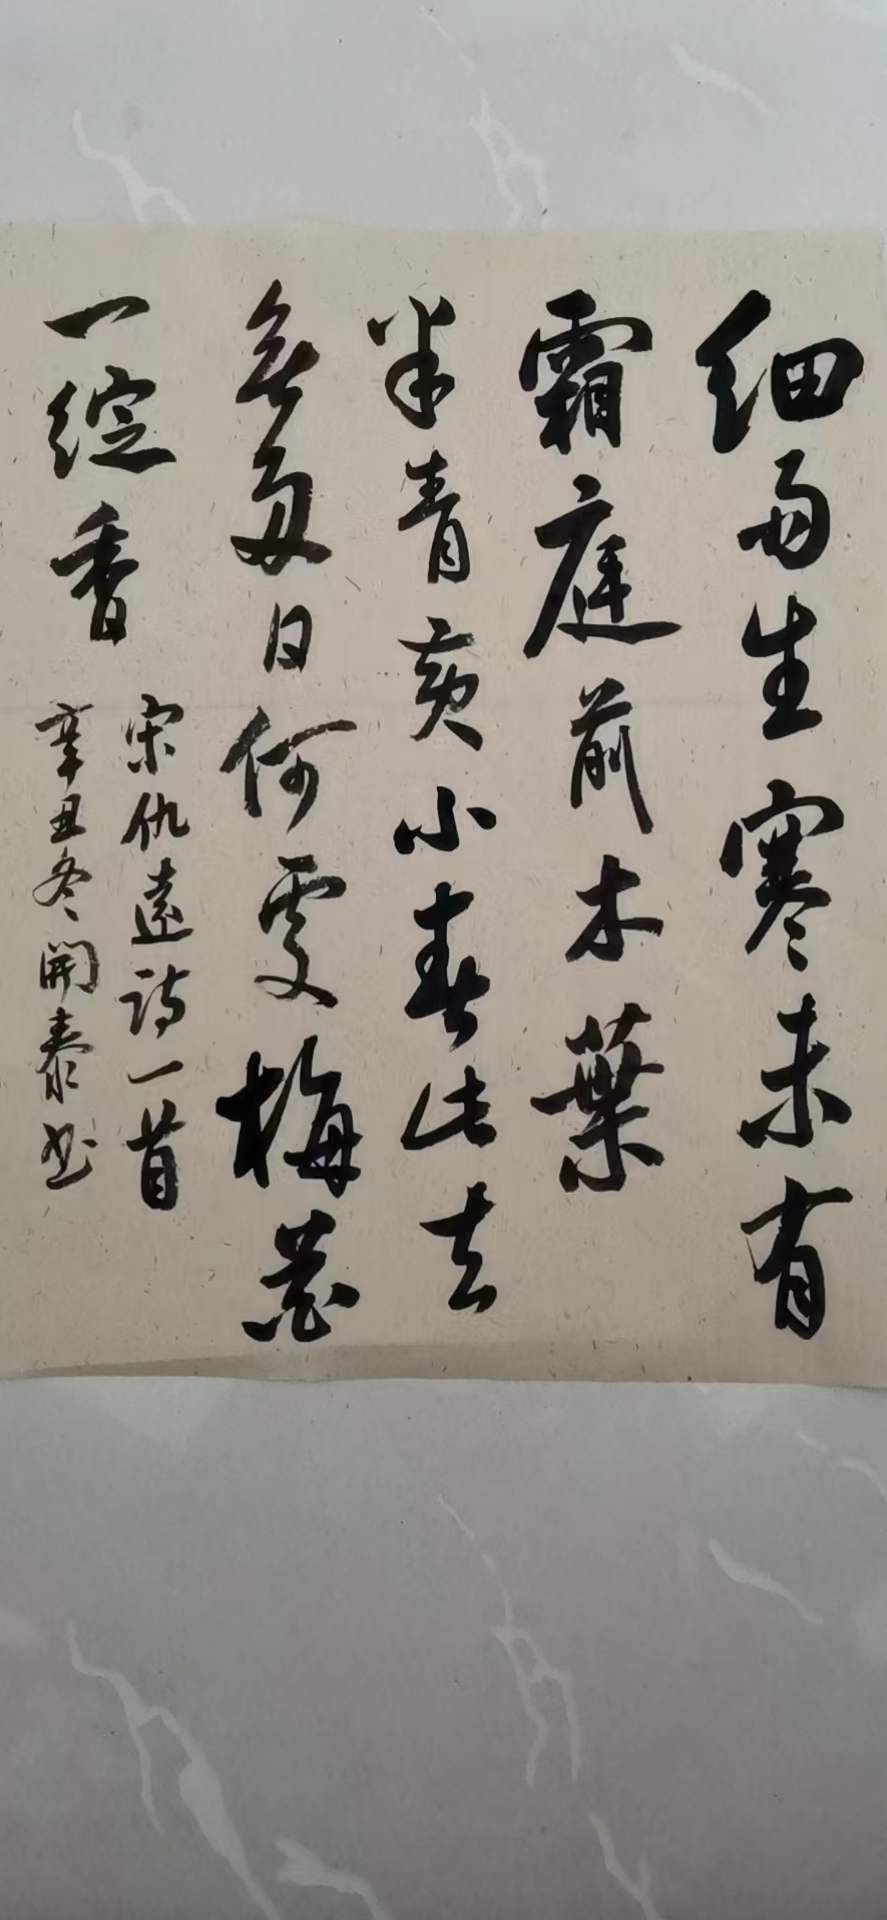 细雨生寒未有
霜庭前木葉
半青黄小春此去
無多日何處梅花
一绽香
宋仇遠詩一首
辛丑冬開泰书